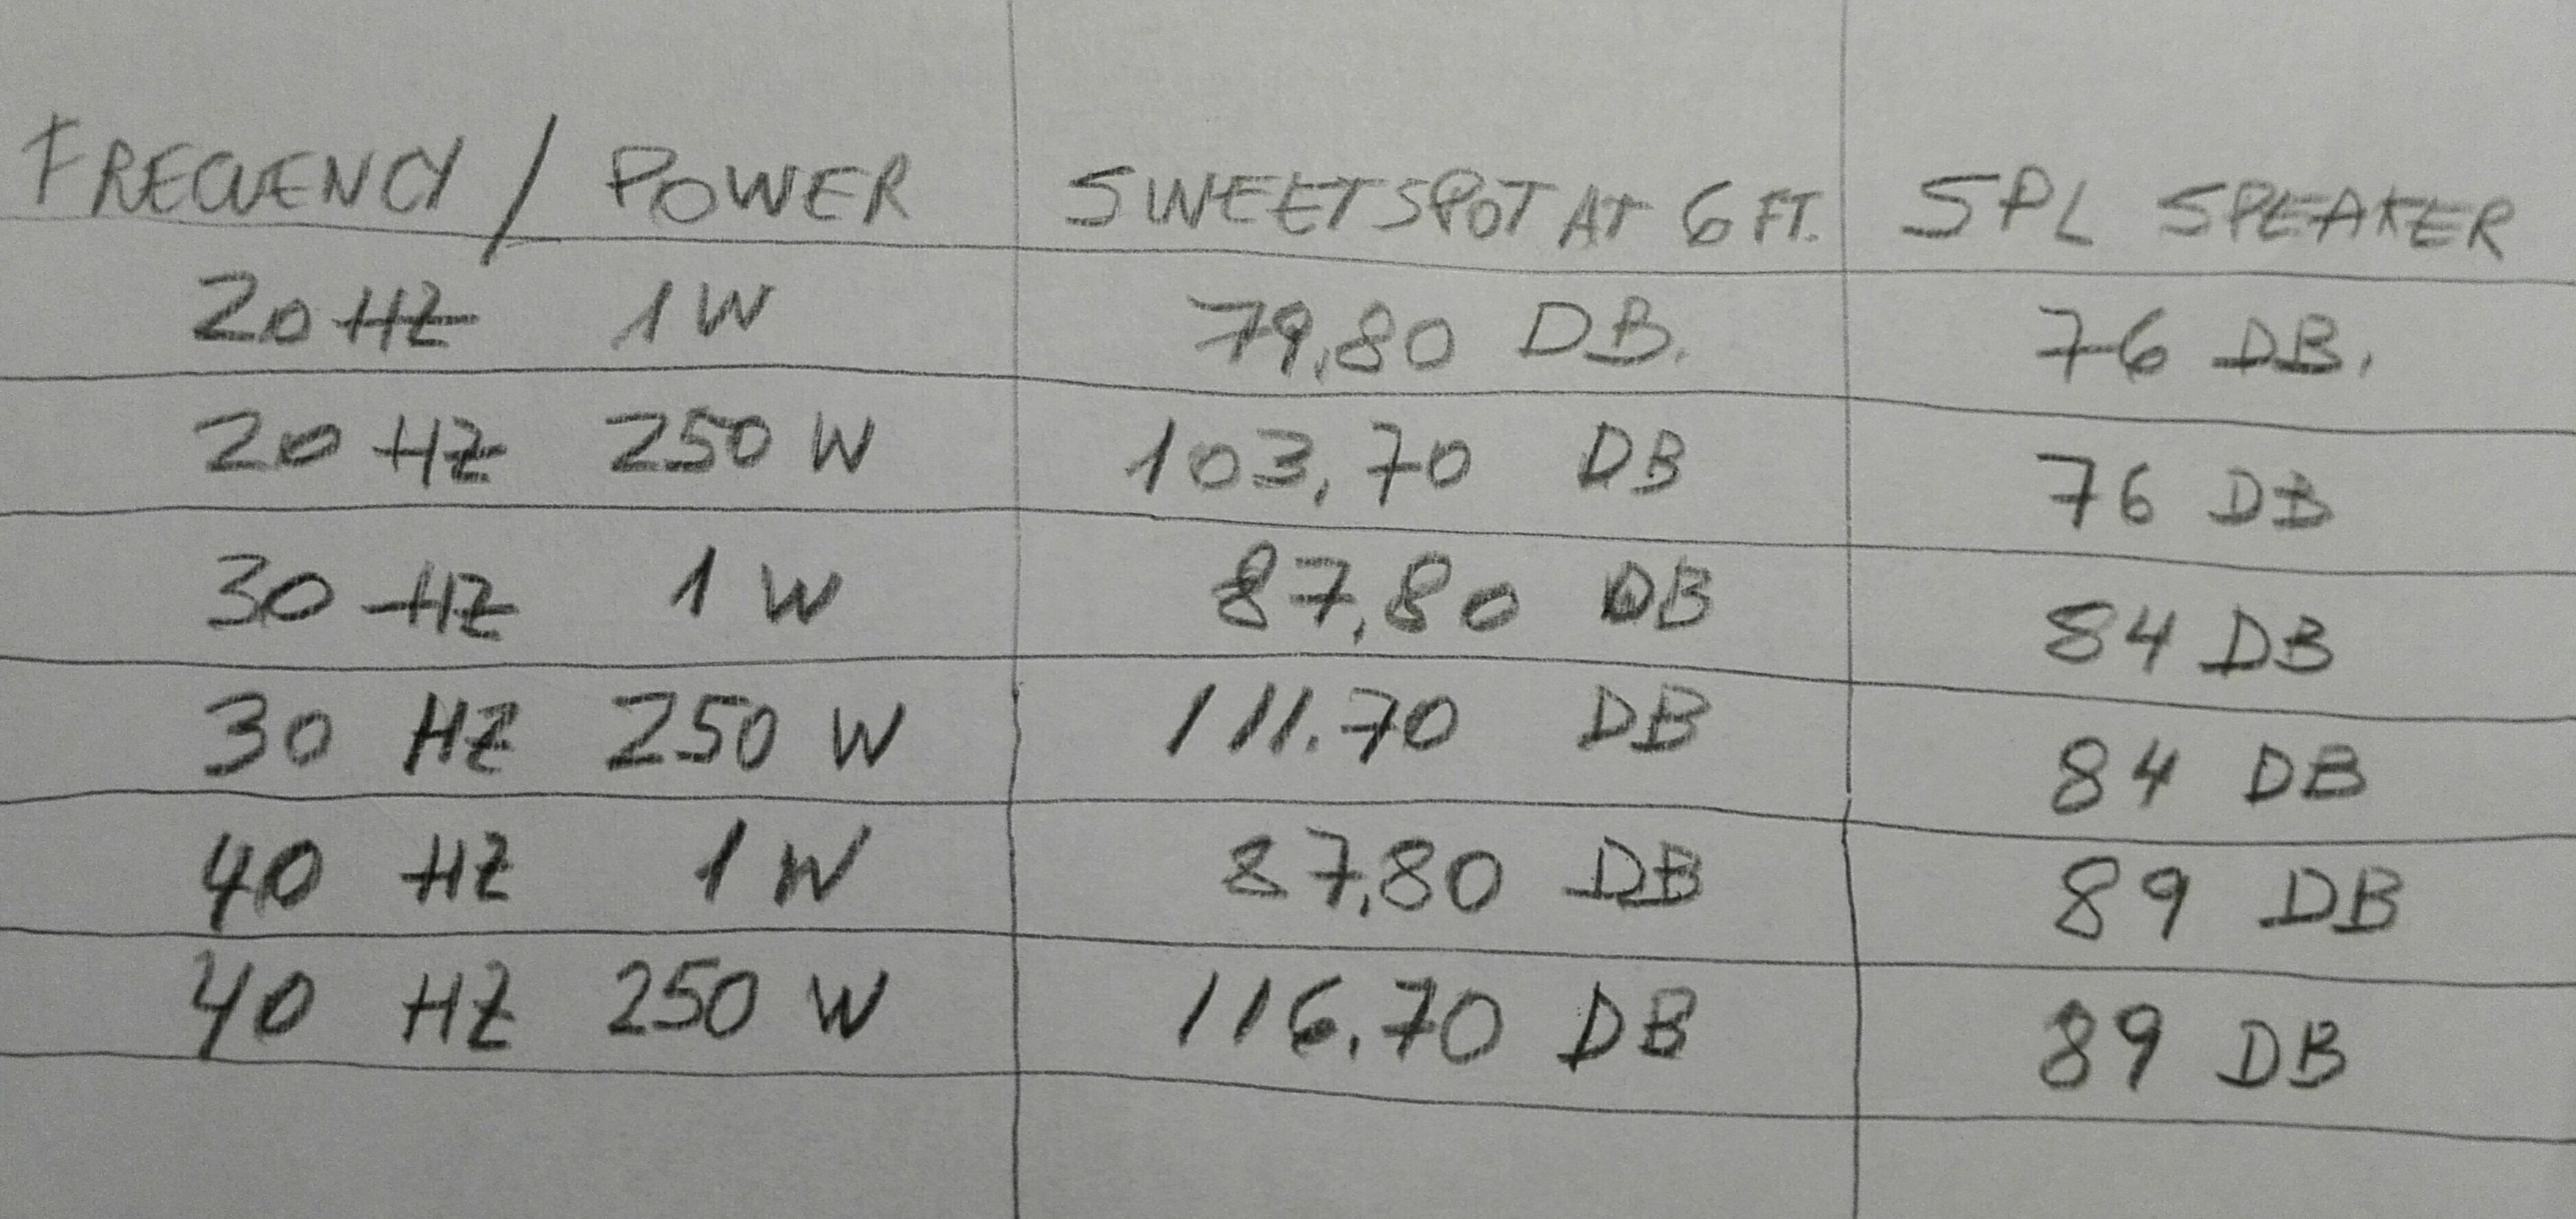 FREQUENCY / POWER SWEETSPOT AT 6 FT. SPL SPEAKER
20 HZ 1 W 79,80 DB. 76 DB.
20 HZ 250 W 103,70 DB 76 DB
30 HZ 1 W 87,80 DB 84 DB
30 HZ 250 W 111.70 DB 84 DB
40 HZ 1 W 87,80 DB 89 DB
40 HZ 250 W 116,70 DB 89 DB